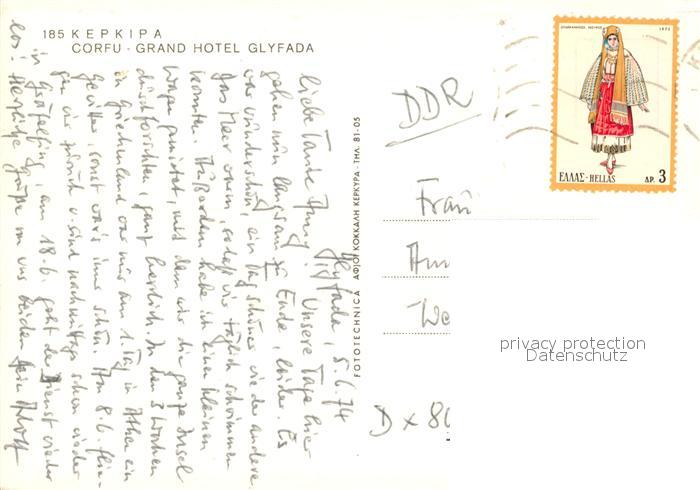 185 ΚΕΡΚΙΡΑ
CORFU - GRAND HOTEL GLYFADA
Glyfada, 5.6.74
Liebe Tante Anny! Unsere Tage hier
gehen nun langsam zu Ende, leider. Es
war wunderschön, ein Tag schöner wie der andere,
das Meer warm, sodaß wir täglich schwimmen
konnten. Außerdem habe ich einen kleinen
Wagen gemietet, mit dem wir die ganze Insel
durchforschten, ganz herrlich. In den 3 Wochen
in Griechenland war nur am 1. Tag in Athen ein
Gewitter, sonst war's immer schön. Am 8.6. flie-
gen wir zurück u. sind nachmittags schon wieder
in Gräfelfing, am 18.6. geht der Dienst wieder
los! Herzliche Grüße von uns beiden Dein Adolf
FOTOTECHNICA ΑΦΟΙ ΚΟΚΚΑΛΗ ΚΕΡΚΥΡΑ - ΤΗΛ. 81-05
DDR
Frau
Ann
We
D x 80
1972
ΕΛΛΑΣ-HELLAS ΔΡ. 3
privacy protection
Datenschutz